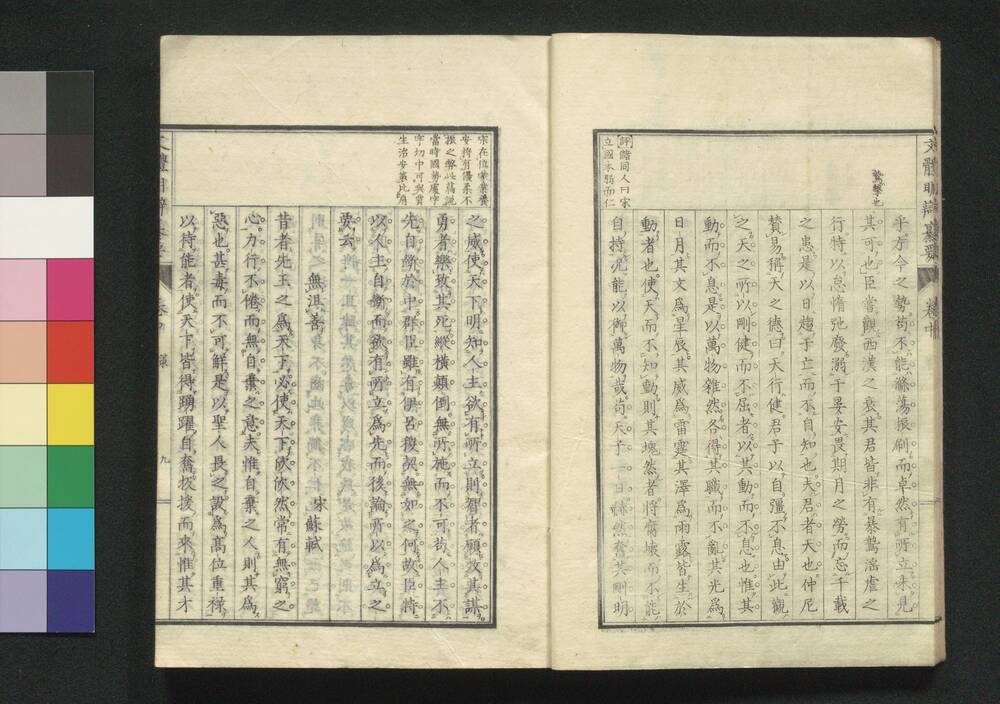 文體明辯纂要 卷中
鷙擊也
乎方今之勢苟不能滌蕩振刷而卓然有所立未見
其可也臣嘗觀西漢之衰其君皆非有暴鷙淫虐之
行特以怠惰弛廢溺于晏安畏期月之勞而忘千載
之患是以日趨于亡而不自知也夫君者天也仲尼
贊易稱天之德曰天行健君子以自彊不息由此觀
之天之所以剛健而不屈者以其動而不息也惟其
動而不息是以萬物雜然各得其職而不亂其光爲
日月其文爲星辰其威爲雷霆其澤爲雨露皆生於
動者也使天而不知動則其塊然者將腐壞而不能
評諸同人曰宋
立國本弱而仁
自持況能以御萬物哉苟天子一日赫然奮其剛明
宋在位業業養
安持有優柔不
振之弊此篇說
當時國勢處字
字切中可與賈
生治安策比肩
之威使天下明知人主欲有所立則智者願效其謀
勇者樂致其死縱橫顛倒無所施而不可苟人主不
先自斷於中群臣雖有伊呂稷契無如之何故臣特
以人主自斷而欲有所立爲先而後論所以爲立之
要云
無沮善 宋蘇軾
昔者先王之爲天下必使天下欣欣然常有無窮之
心力行不倦而無自棄之意夫惟自棄之人則其爲
惡也甚毒而不可解是以聖人畏之設爲高位重祿
以待能者使天下皆得踴躍自奮扳援而來惟其才
九